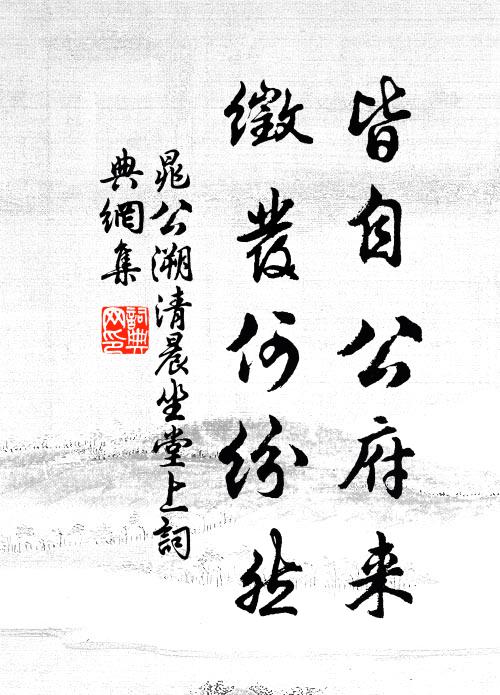 皆自公府来
徵發何紛然
晁公溯清晨坐堂上詞
典網集
詞典
网印